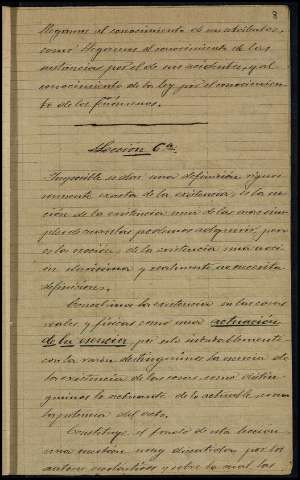 8
llegamos al conocimiento de sus atributos,
como llegamos al conocimiento de las
sustancias por el de sus accidentes, y al
conocimiento de la ley por el conocimien-
to de los fenómenos.
Leccion 6ª.
Imposible es dar una definicion rigurosa-
mente exacta de la existencia; es la no-
cion de la existencia una de las mas sim-
ples de cuantas podemos adquirir; pues
es la nocion de la existencia una noci-
on clarisima y realmente no necesita
definicion.
Concebimos la existencia en las cosas
reales y fisicas como una actuación
de la esencia; por esto indudablemente
con la razon distinguimos la esencia de
la existencia de las cosas, como distin-
guimos lo actuante de lo actuable o sea
la potencia del acto.
Constituye el fondo de esta leccion
una cuestion muy discutida por los
autores escolásticos y sobre la cual los